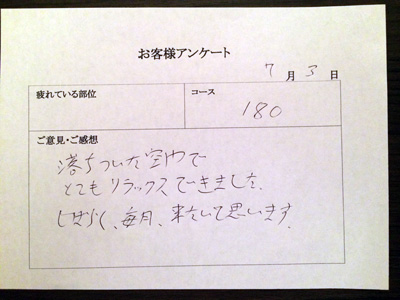 お客様アンケート
7月3日
疲れている部位
コース
180
ご意見・ご感想
落ちついた空間で
とてもリラックスできました。
しばらく、毎月、来たいて思います。